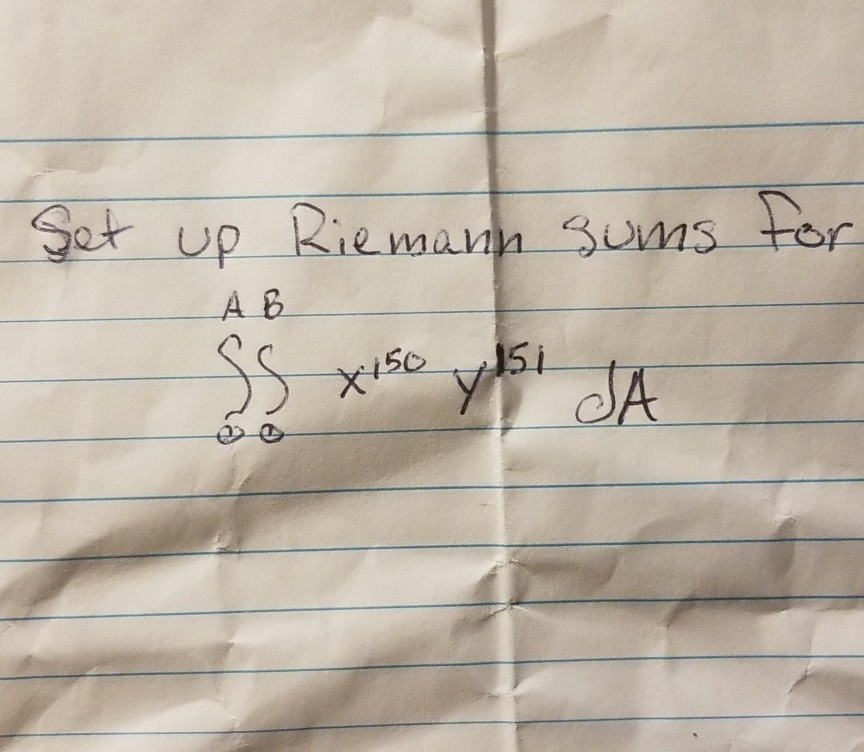 Set up Riemann sums for
A B
∫∫ x¹⁵⁰ y¹⁵¹ dA